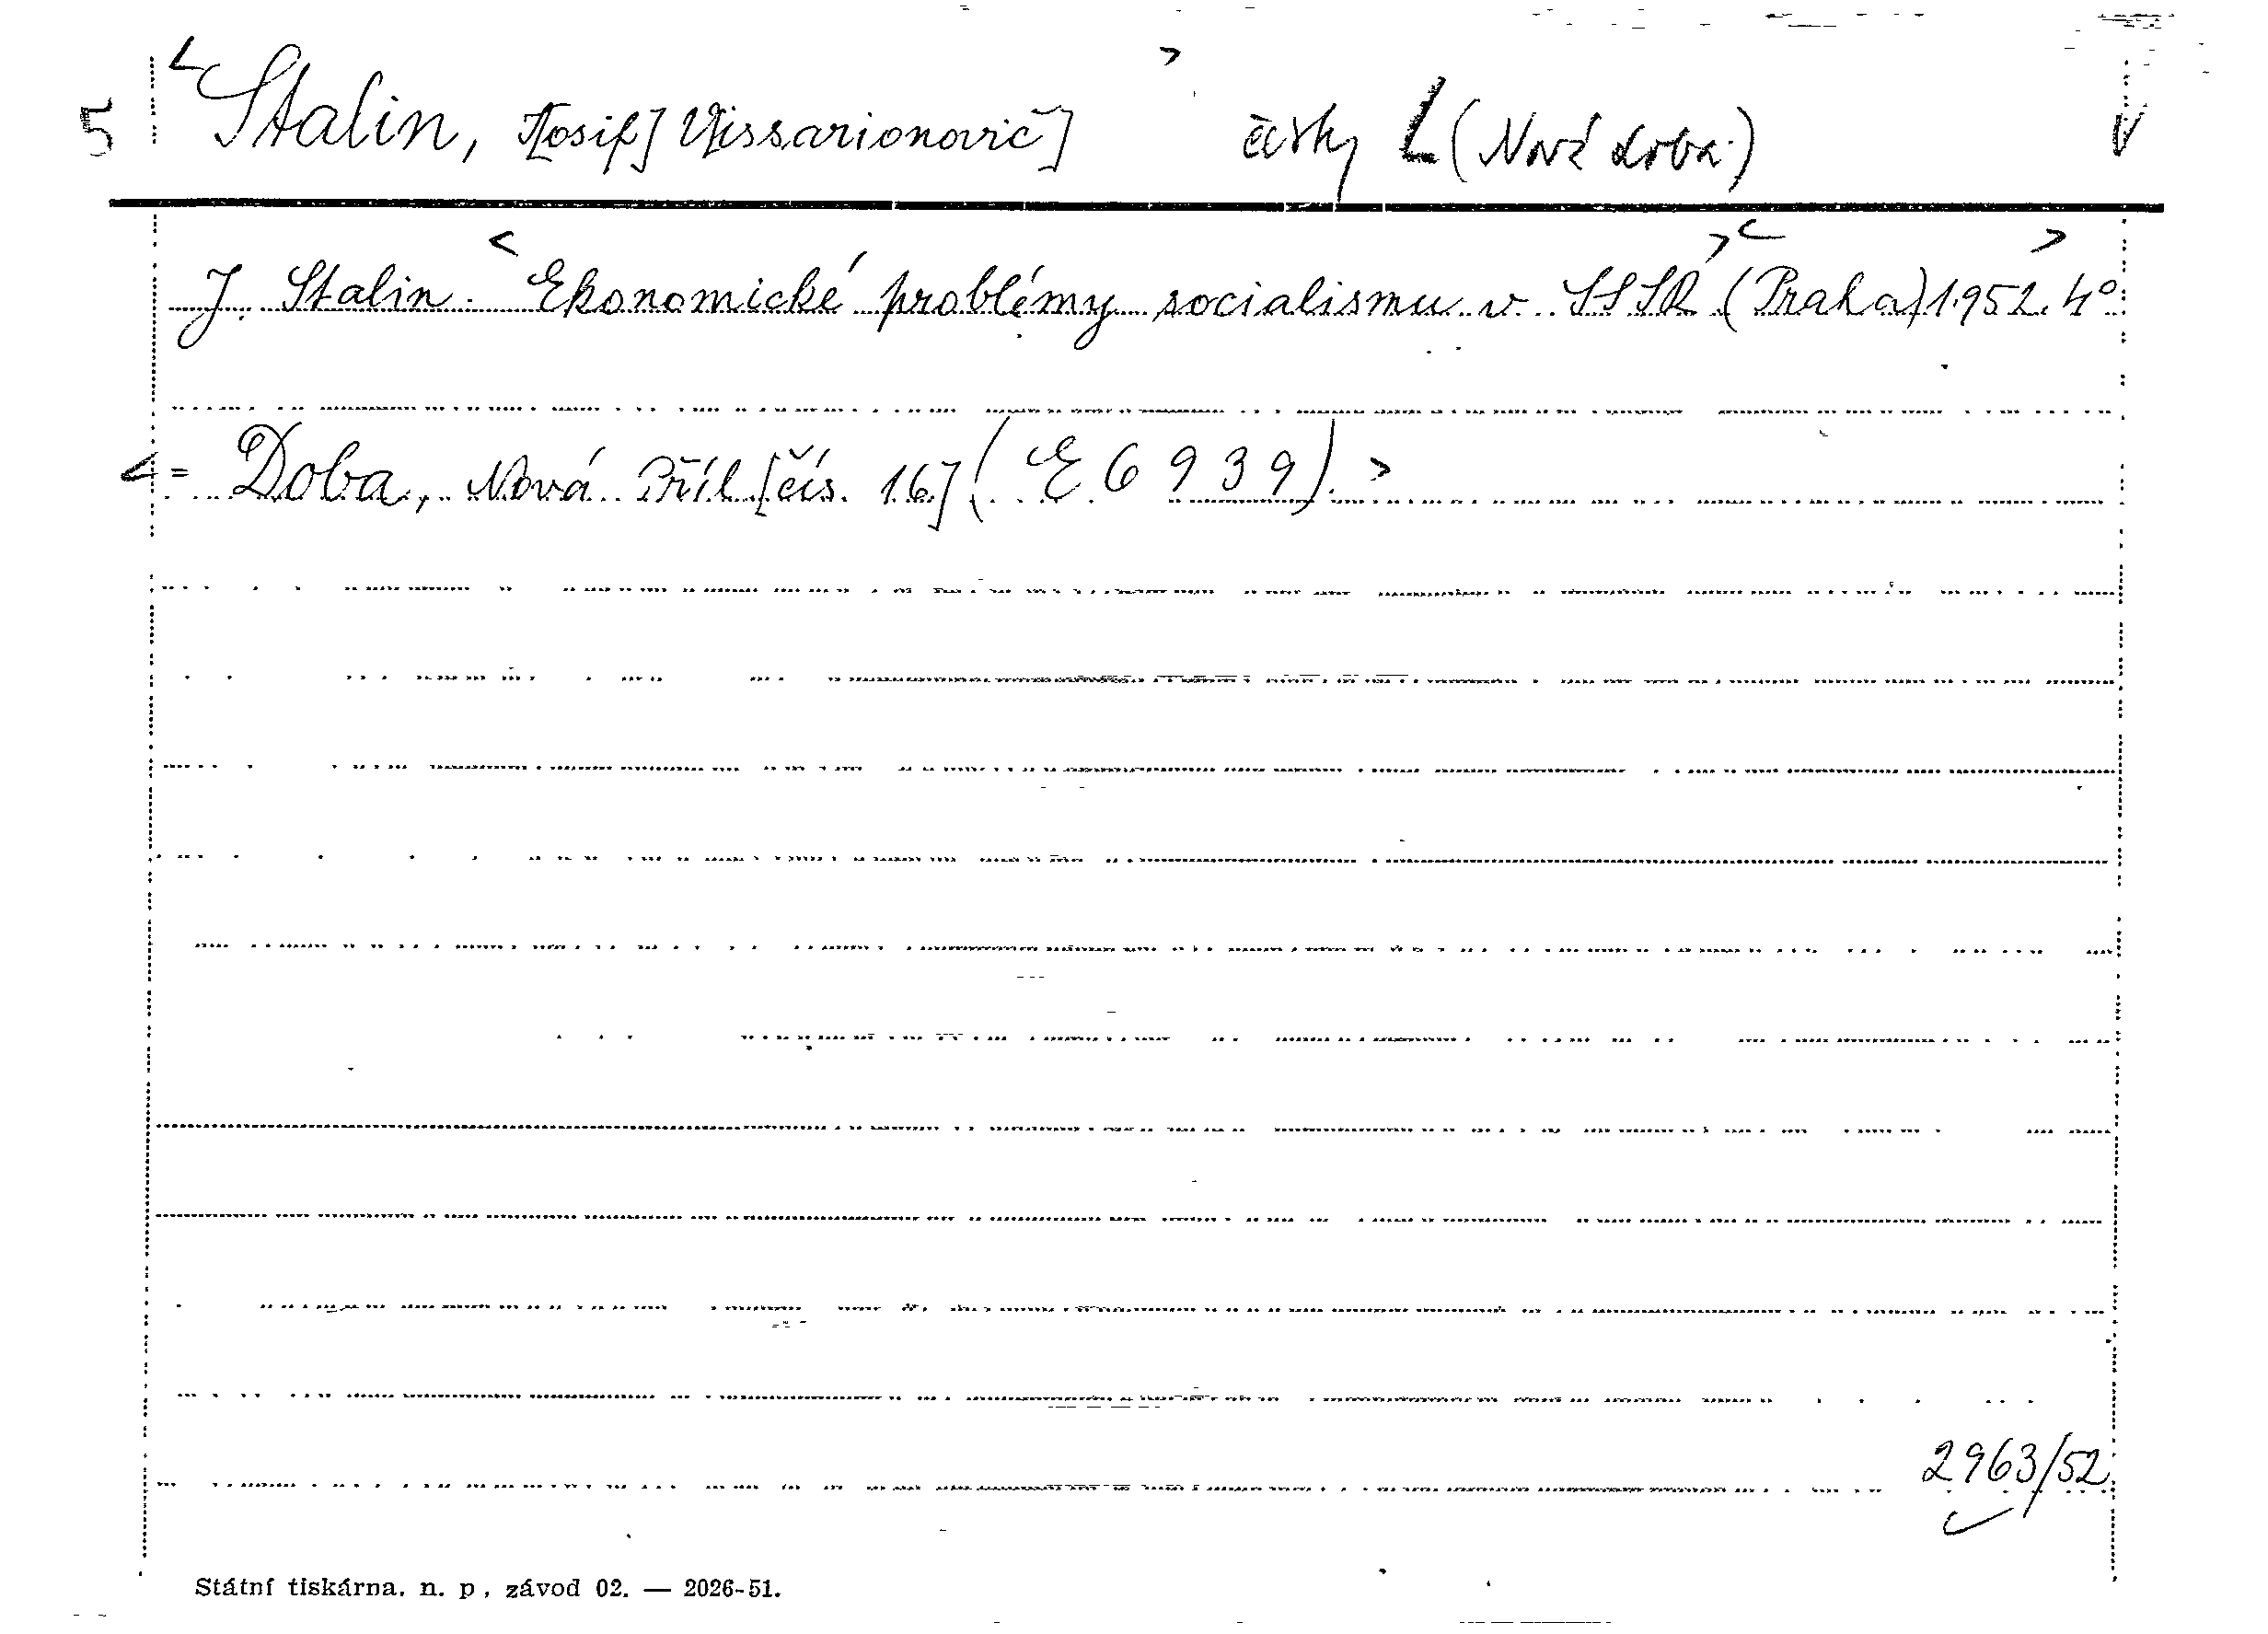 5 <Stalin, J[osif] V[issarionovič]> česky L (Nová doba) V
J. Stalin. <Ekonomické problémy socialismu v SSSR> <(Praha) 1952. 4°>
<= Doba, Nová. Příl. [čís. 16] (E 6939).>
2963/52
Státní tiskárna, n. p., závod 02. — 2026-51.